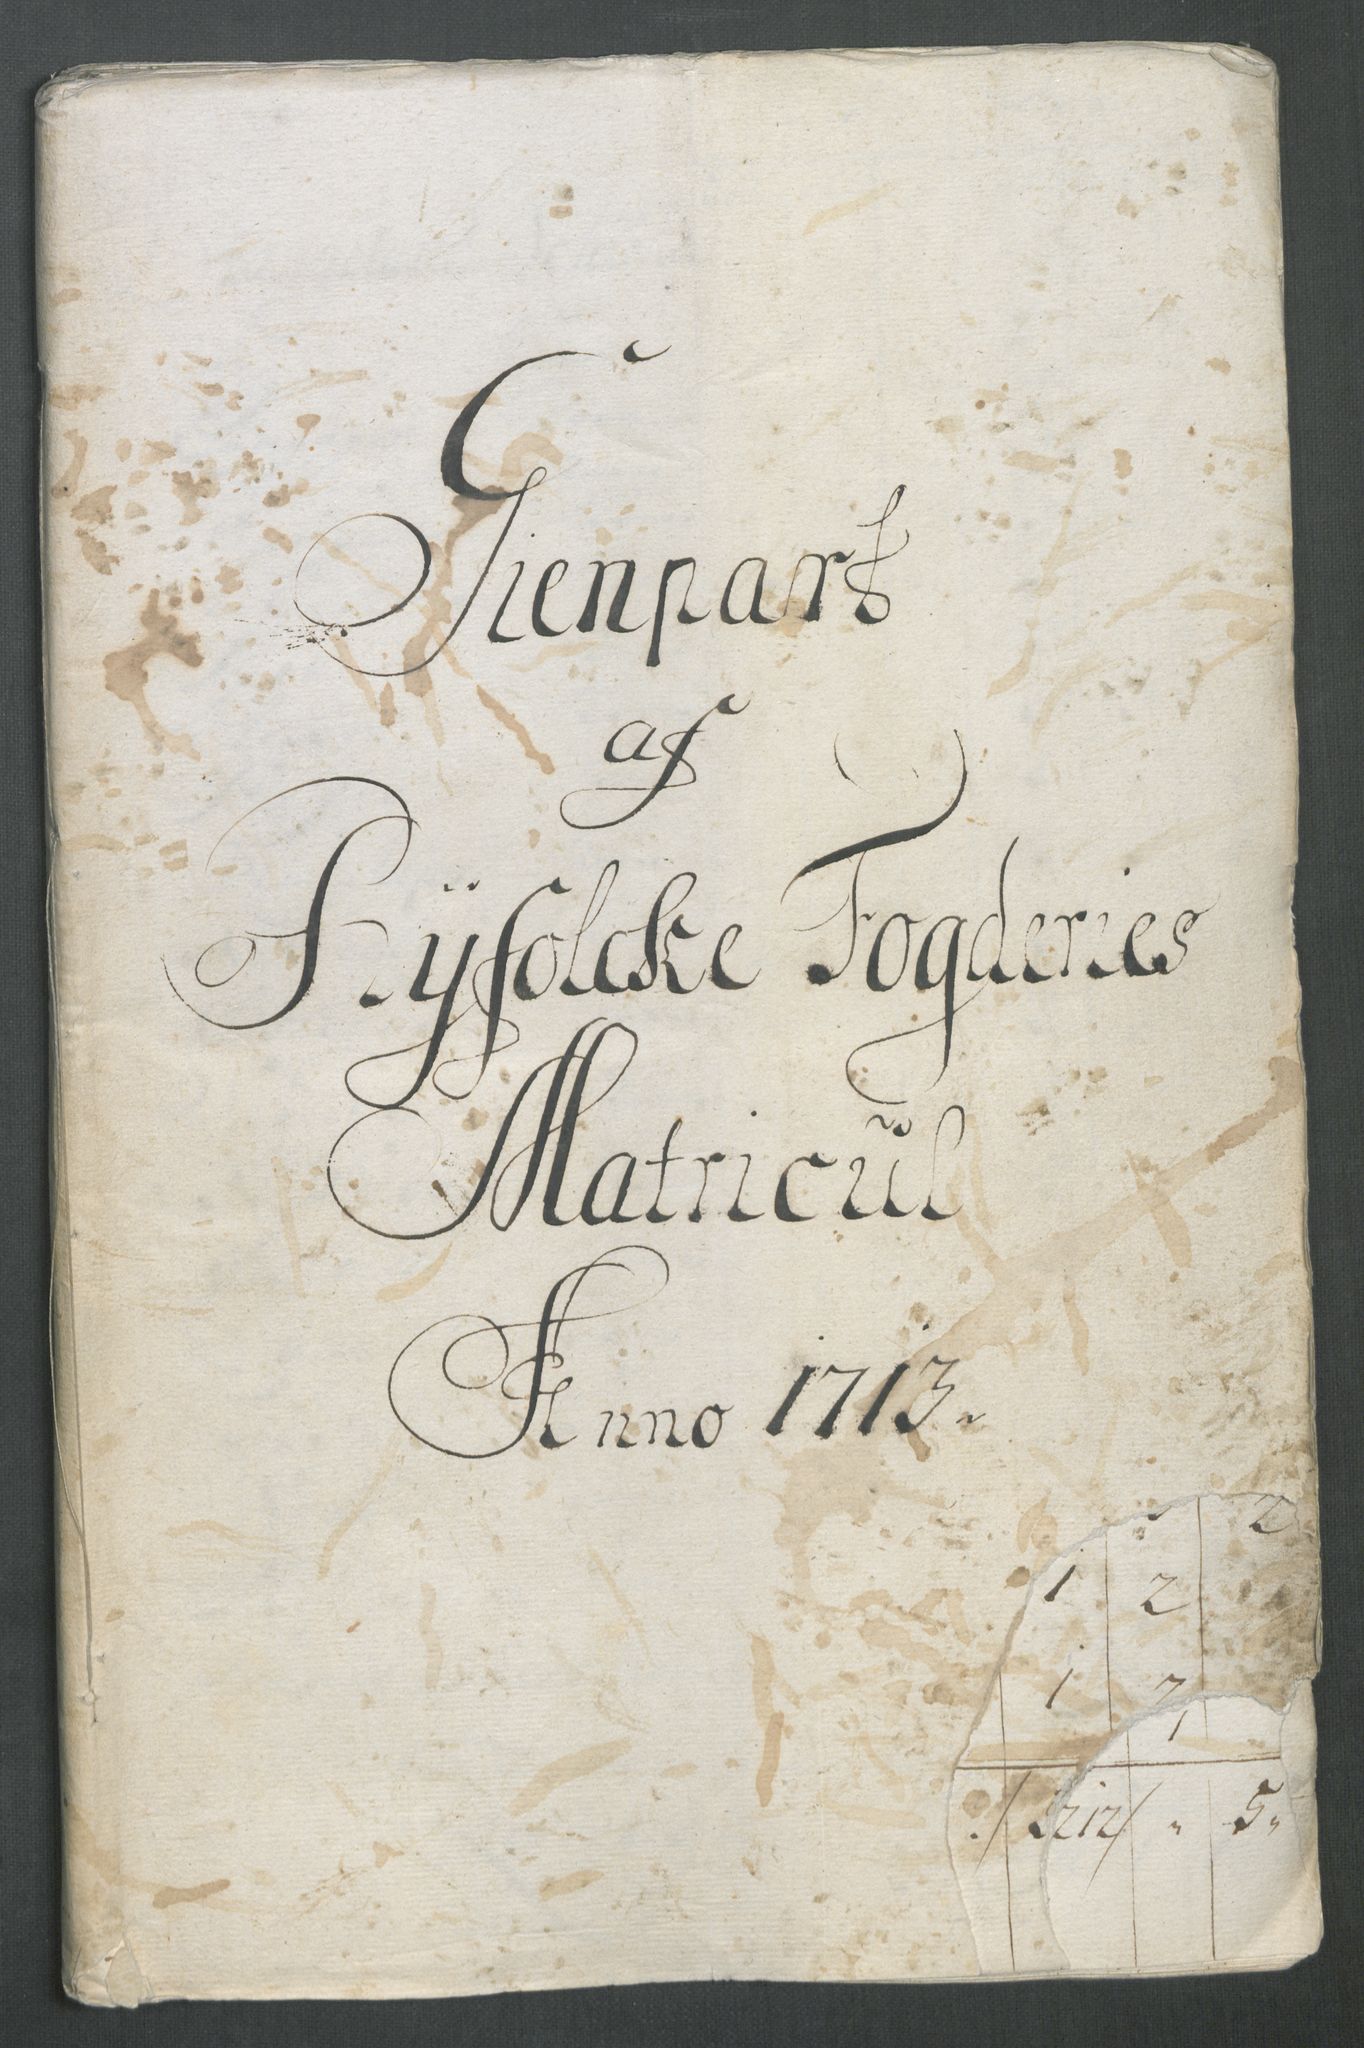 Gienpart
af
Ryfolcke Fogderies
Matricül
Anno 1713.
2
1 2
1 7
1
5